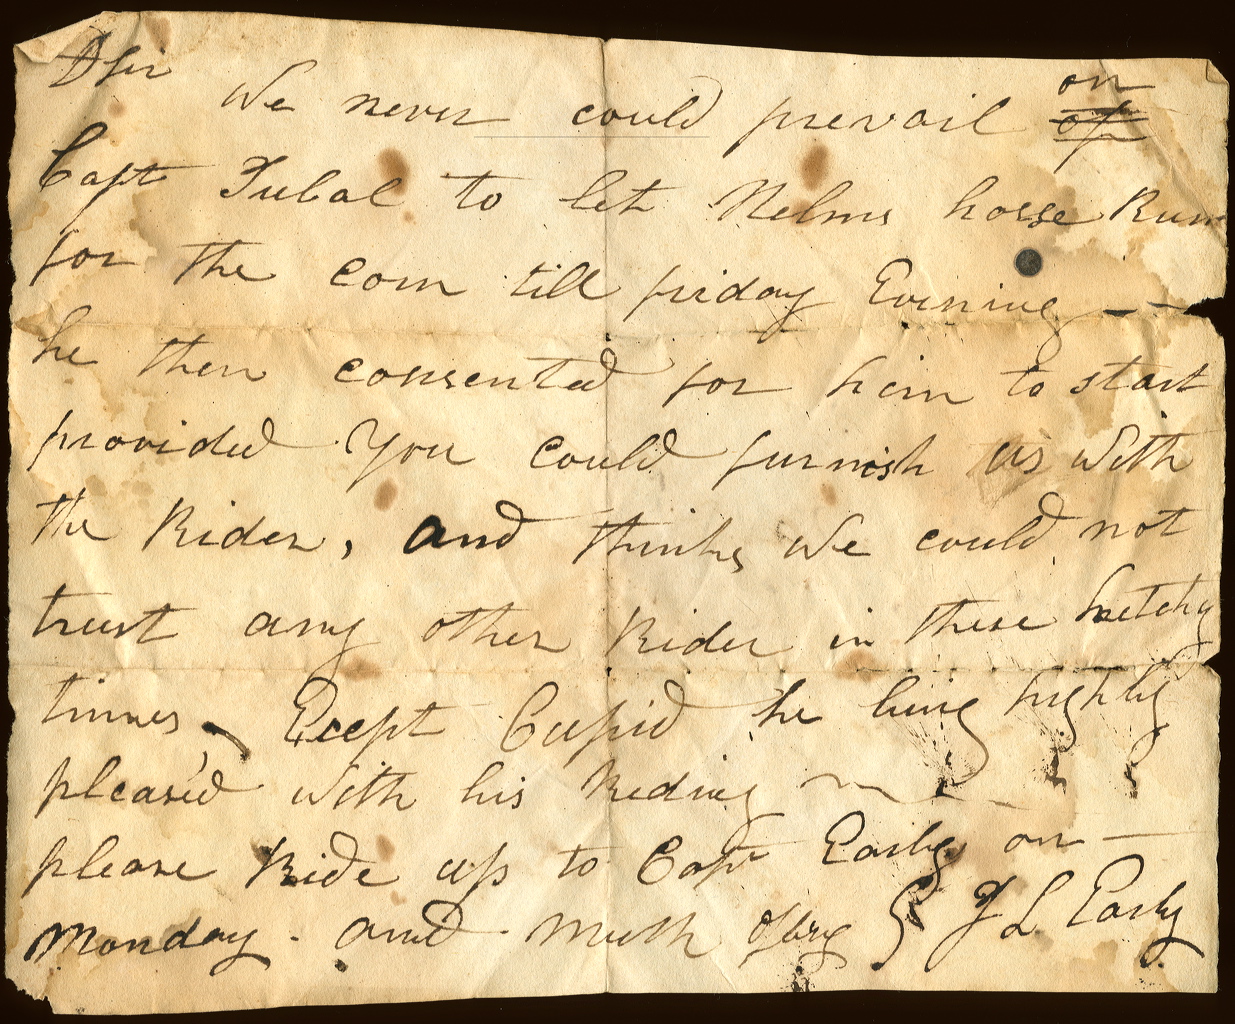 DSir
We never could prevail on
Capt Tubal to let Nelms horse Run
for the corn till friday Evening --
he then consented for him to start
provided You could furnish us with
the Rider, and thinks We could not
trust any other Rider in these
times, Except Cupid he being highly
pleased with his Rideing
please Ride up to Capt Earlys on
Monday. and much oblige J L Early